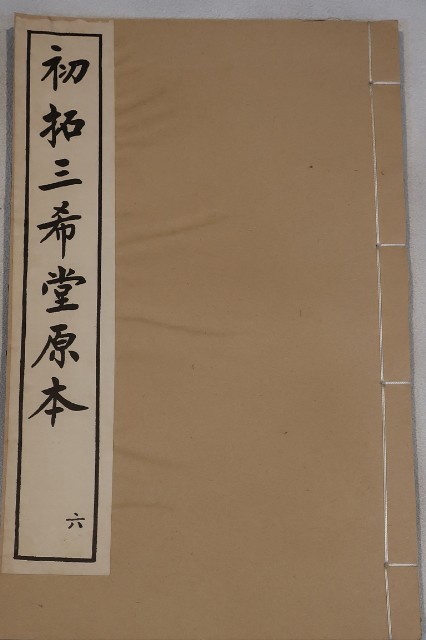 初拓三希堂原本
六